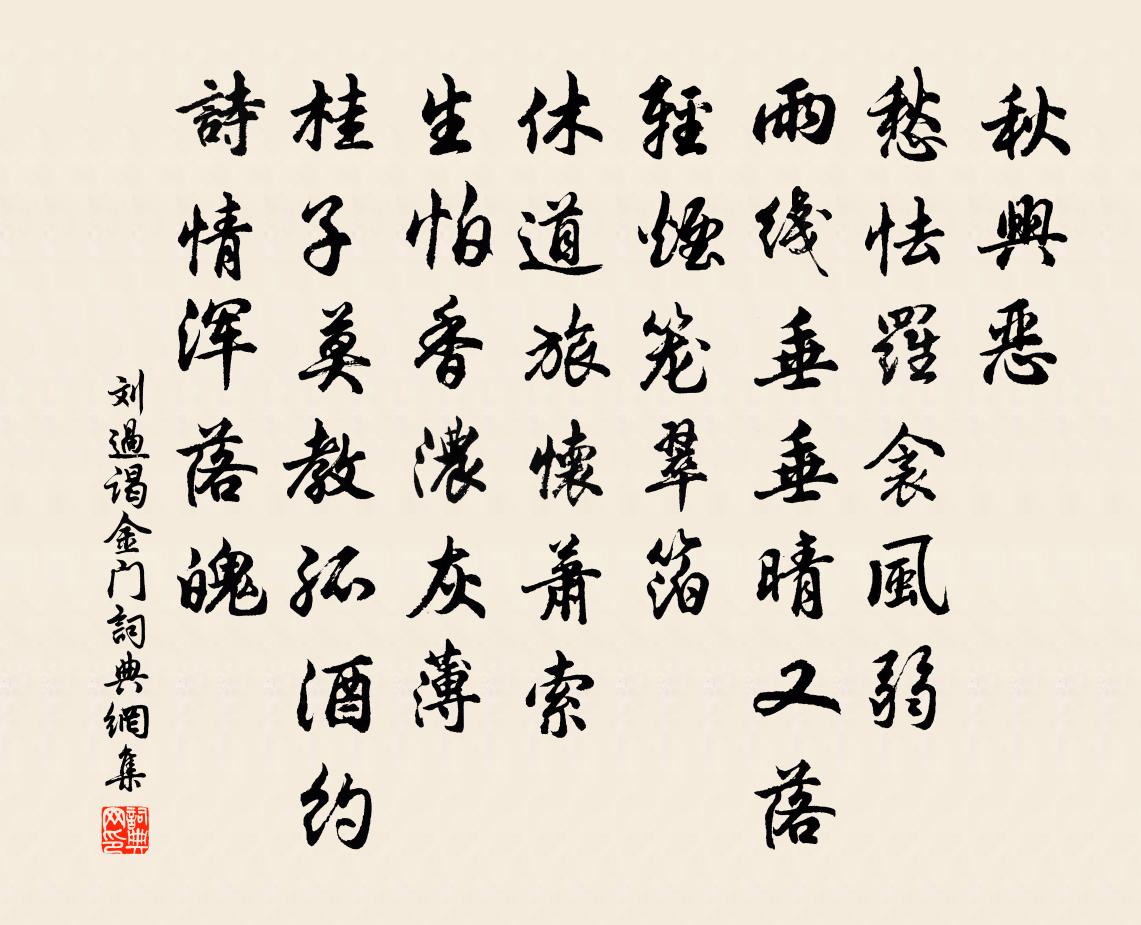 秋興惡
愁怯羅衾風弱
雨线垂垂晴又落
輕煙笼翠箔
休道旅懷蕭索
生怕香濃灰薄
桂子莫教孤酒约
詩情浑落魄
刘過谒金门詞典網集
詞典网印